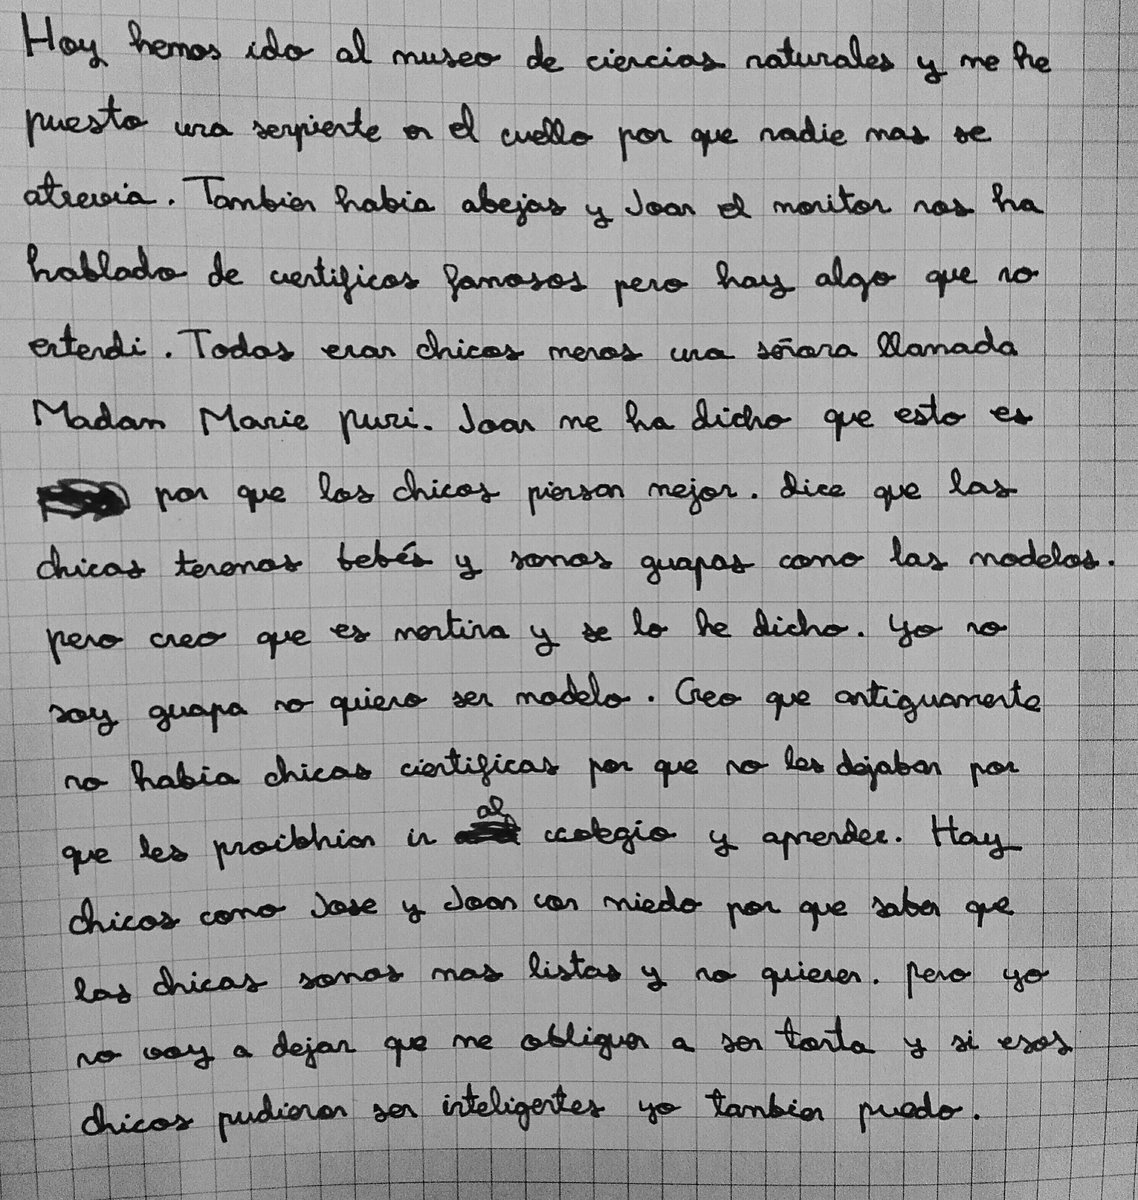 Hoy hemos ido al museo de ciencias naturales y me he
puesto una serpiente en el cuello por que nadie mas se
atrevia. Tambien habia abejas y Joan el monitor nos ha
hablado de cientificos famosos pero hay algo que no
entendi. Todos eran chicos menos una señora llamada
Madan Marie puri. Joan me ha dicho que esto es
por que los chicos piensan mejor. dice que las
chicas tenemos bebés y somos guapas como las modelos.
pero creo que es mentira y se lo he dicho. yo no
soy guapa no quiero ser modelo. Creo que antiguamente
no habia chicas cientificas por que no les dejaban por
que les proibhien ir al colegio y aprender. Hay
chicos como Jose y Joan con miedo por que saben que
las chicas somos mas listas y no quieren. pero yo
no voy a dejar que me obliguen a ser tonta y si esos
chicos pudieron ser inteligentes yo tambien puedo.